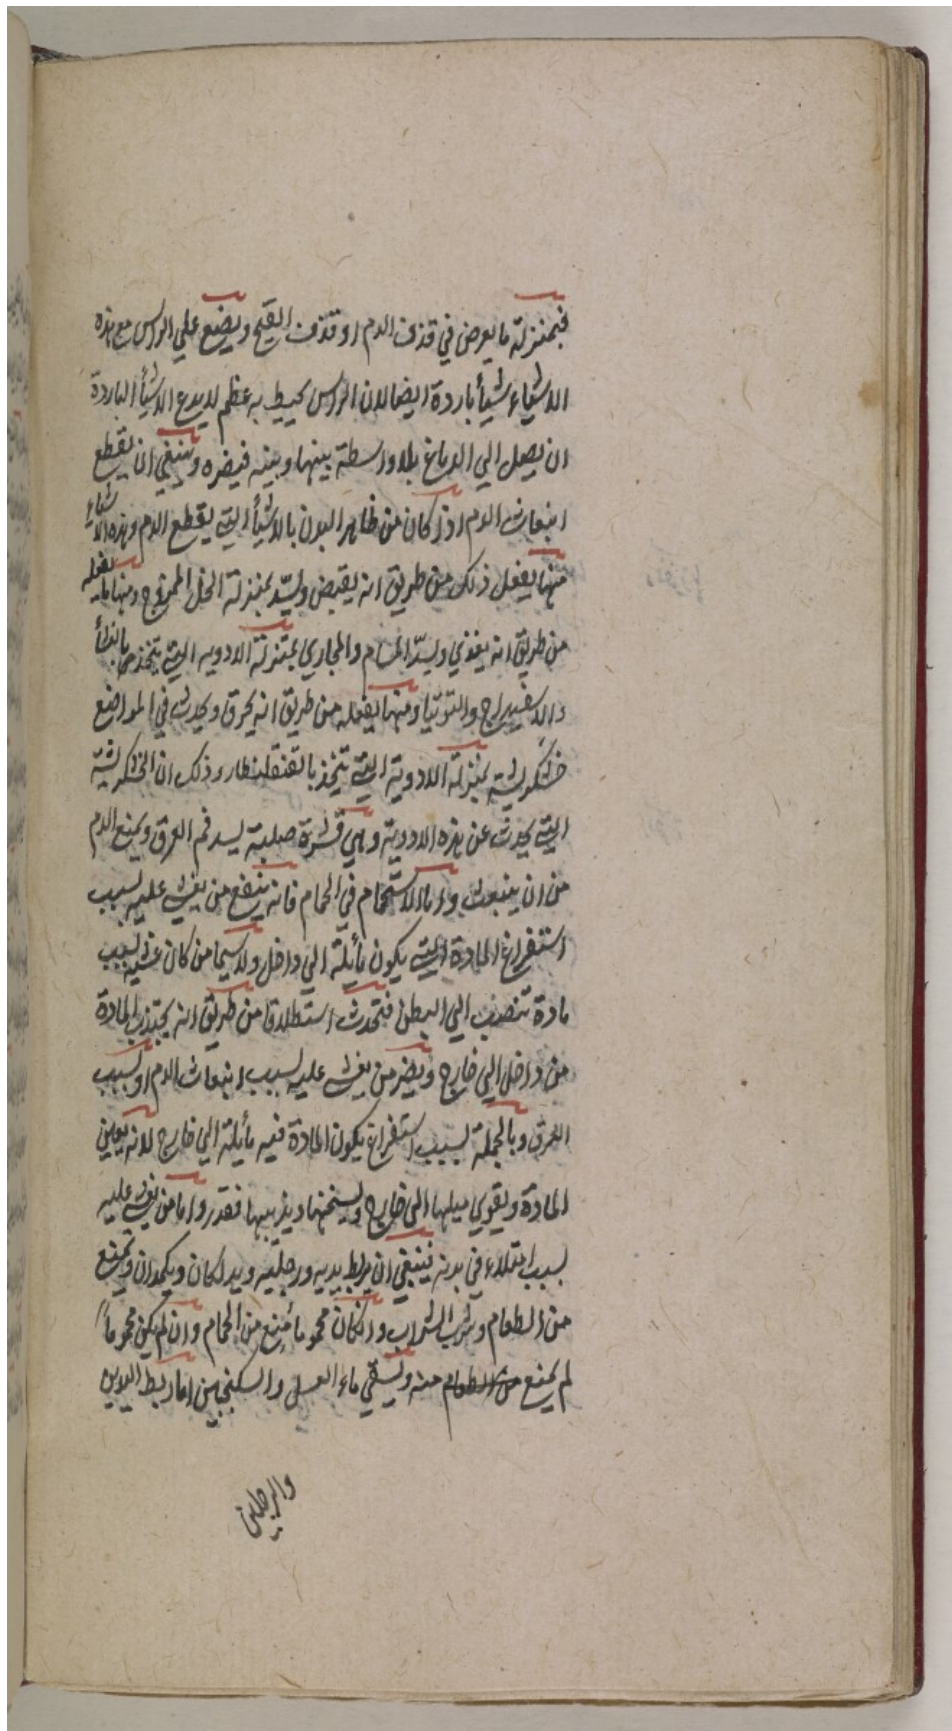 فبمنزلة ما يعرض في قذف الدم او قذف القيح ويضع علي الراس مع هذه
الاشياء شيأ باردة ايضا لان الراس يحيط به عظم لا يدع الاشيأ الباردة
ان يصل الي الدماغ بلا واسطة بينها وبينه فيضره وينبغي ان يقطع
انبعاث الدم اذا كان من ظاهر البدن بالاشيأ التي يقطع الدم وهذه الاشياء
منها يفعل ذلك من طريق انه يقبض ويسدّ بمنزلة الخل الممزوج ومنها ما يفعله
من طريق انه يغذي ويسدّ المسام والمجاري بمنزلة الادويه التي يتخذ
والاسفيداج والتوتيا ومنها يفعله من طريق انه يحرق ويحدث في المواضع
خشكريشة بمنزلة الادوية التي يتخذ بالقنقلنطار وذلك ان الخشكريشة
التي يحدث عن هذه الادوية وهي قشرة صلبة يسد فم العرق ويمنع الدم
من ان ينبعث واما الاستحمام في الحمام فانه ينتفع من يغشي عليه بسبب
استفراغ المادة التي يكون مأيلة الي داخل ولا سيما من كان غشيه بسبب
مادة تنصب الي البطن فتحدث استطلاقا من طريق انه يجتذب المادة
من داخل الي خارج ويضر من يغشي عليه بسبب انبعاث الدم او بسبب
العرق وبالجملة بسبب استفراغ يكون المادة فيه مأيلة الي خارج لانه يعين
المادة ويقوي ميلها الي خارج ويسخنها ويذيبها فقدروا ما من يغشي عليه
بسبب امتلاء في بدنه فينبغي ان يربط يديه ورجليه ويدلكان ويكمدان ويمنع
من الطعام وشرب الشراب وان كان محموما مُنع من الحمام وان لم يكن محموماً
لم يمنع منه ويسقي ماء العسل والسكنجبين اما ربط اليدين
والرجلين